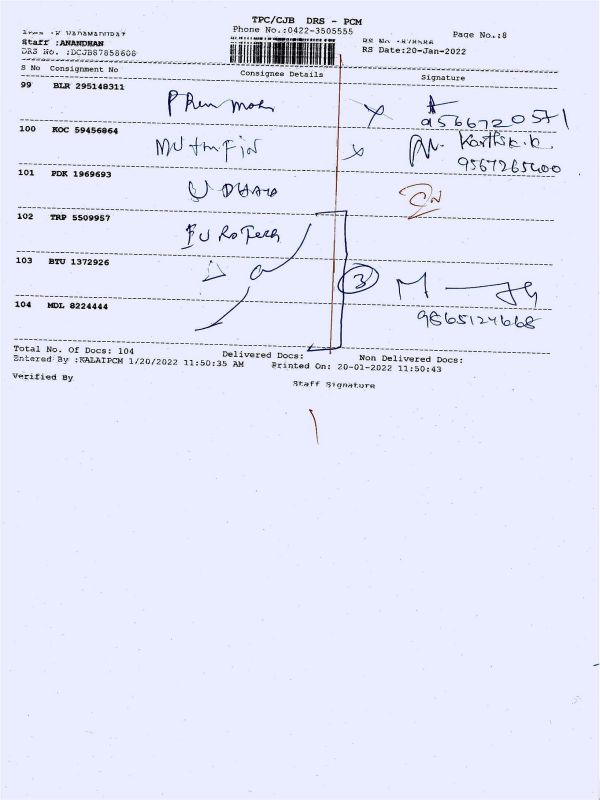 TPC/CJB DRS - PCM
Phone No.:0422-3505555 Page No.:8
Staff :ANANDHAN
DRS No. :DCJB87858608 RS Date:20-Jan-2022
S No Consignment No Consignee Details Signature
99 BLR 295148311
9566720571
100 KOC 59456864 Karthik.k
9567265400
101 PDK 1969693
102 TRP 5509957 EUROTECH
103 BTU 1372926 3
104 MDL 8224444 9865124668
Total No. Of Docs: 104 Delivered Docs: Non Delivered Docs:
Entered By :KALAIPCM 1/20/2022 11:50:35 AM Printed On: 20-01-2022 11:50:43
Verified By Staff Signature